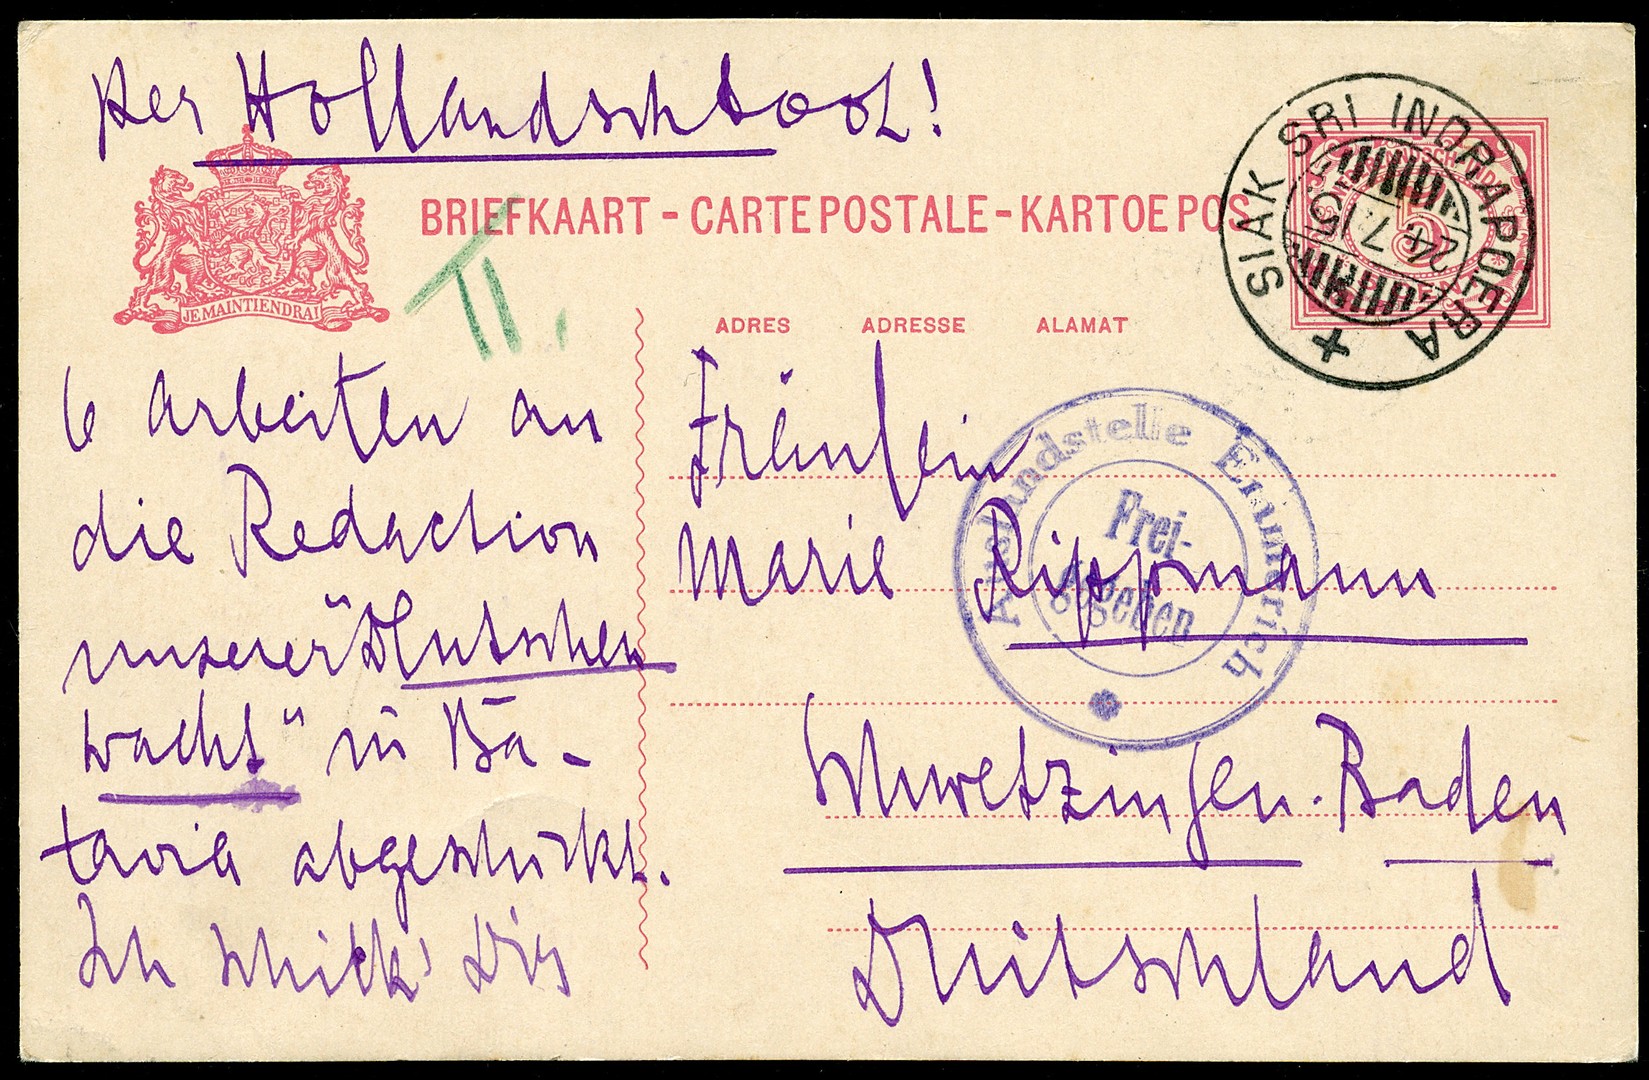 per Hollandschboot!
JE MAINTIENDRAI
BRIEFKAART - CARTE POSTALE - KARTOE POS
SIAK SRI INDRAPOERA
24 7 15
5
II.
ADRES ADRESSE ALAMAT
6 Arbeiten an
die Redaction
unserer "Deutschen
Wacht" in Ba-
tavia abgeschickt.
Ich schick' Dir
Fräulein
Marie Rippmann
Schwetzingen. Baden
Deutschland
Auslandstelle Emmerich
Frei-
gegeben